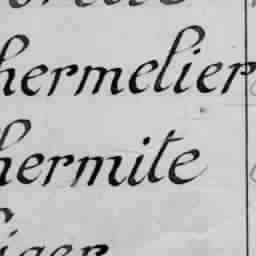 hermelier
hermite
iger